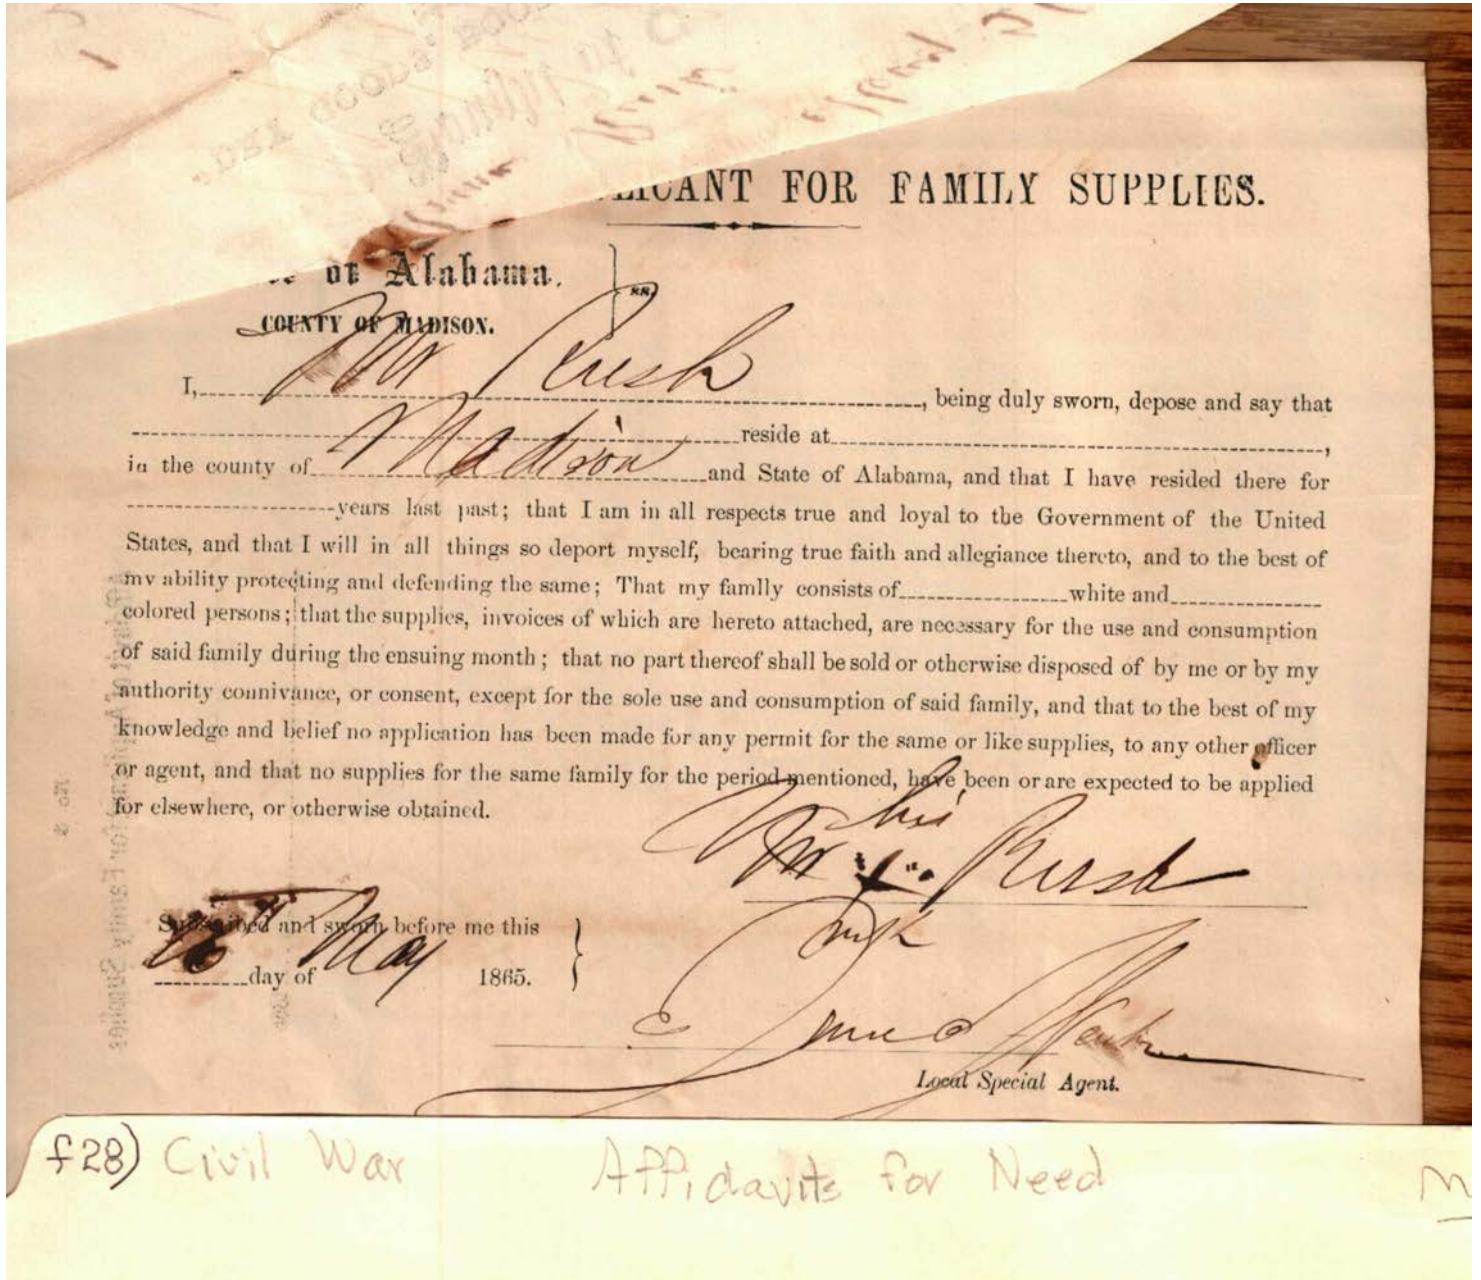 FOR FAMILY SUPPLIES.
of Alabama.
ss.
COUNTY OF MADISON.
I, Wm Rush, being duly sworn, depose and say that
reside at,
in the county of Madison and State of Alabama, and that I have resided there for
years last past; that I am in all respects true and loyal to the Government of the United
States, and that I will in all things so deport myself, bearing true faith and allegiance thereto, and to the best of
my ability protecting and defending the same; That my family consists of white and
colored persons; that the supplies, invoices of which are hereto attached, are necessary for the use and consumption
of said family during the ensuing month; that no part thereof shall be sold or otherwise disposed of by me or by my
authority connivance, or consent, except for the sole use and consumption of said family, and that to the best of my
knowledge and belief no application has been made for any permit for the same or like supplies, to any other officer
or agent, and that no supplies for the same family for the period mentioned, have been or are expected to be applied
for elsewhere, or otherwise obtained.
his
Wm x Rush
mark
Subscribed and sworn before me this
day of May 1865.
Local Special Agent.
f28) Civil War Affidavits for Need